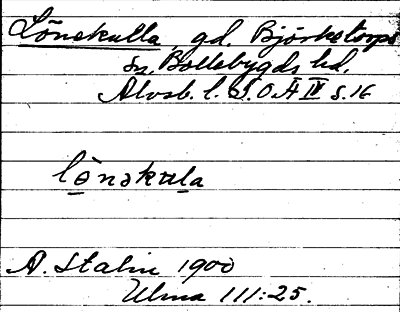 Lönekulla gd. Björketorps
sn. Bollebygds hd.
Älvsb. l. S.O.Ä IV s.16
lö̲nəku̲la
A. Stalin 1900
Ulma 111:25.